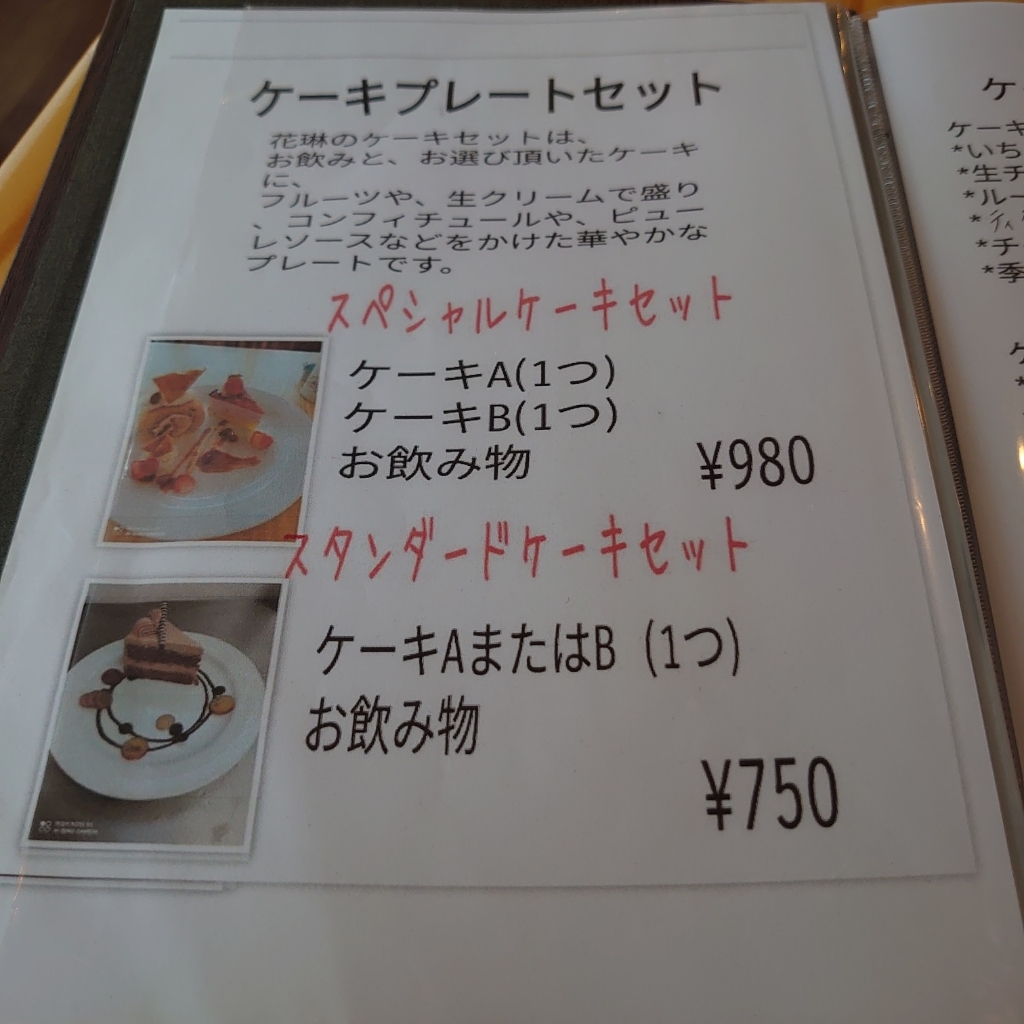 ケーキプレートセット
花琳のケーキセットは、
お飲みと、お選び頂いたケーキ
に、
フルーツや、生クリームで盛り
、コンフィチュールや、ピュー
レソースなどをかけた華やかな
プレートです。
スペシャルケーキセット
ケーキA(1つ)
ケーキB(1つ)
お飲み物 ¥980
スタンダードケーキセット
ケーキAまたはB (1つ)
お飲み物
¥750
ケ
ケーキ
*いち
*生チ
*ルー
*ティ
*チ
*季